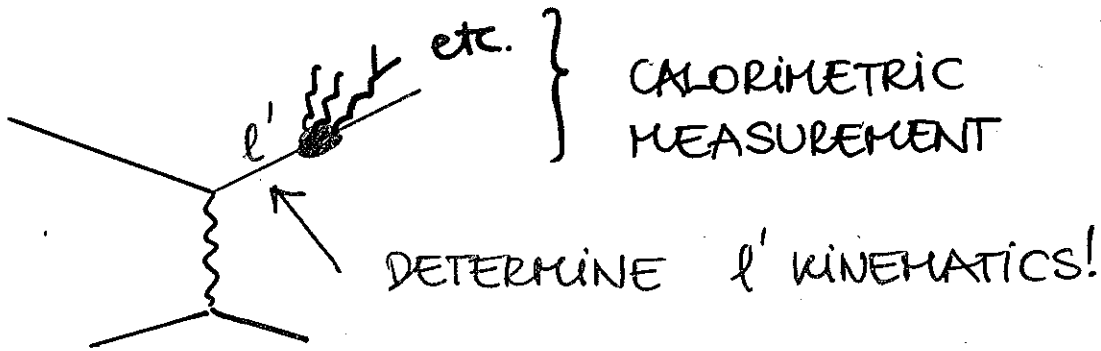 etc.
CALORIMETRIC
MEASUREMENT
l'
DETERMINE l' KINEMATICS!